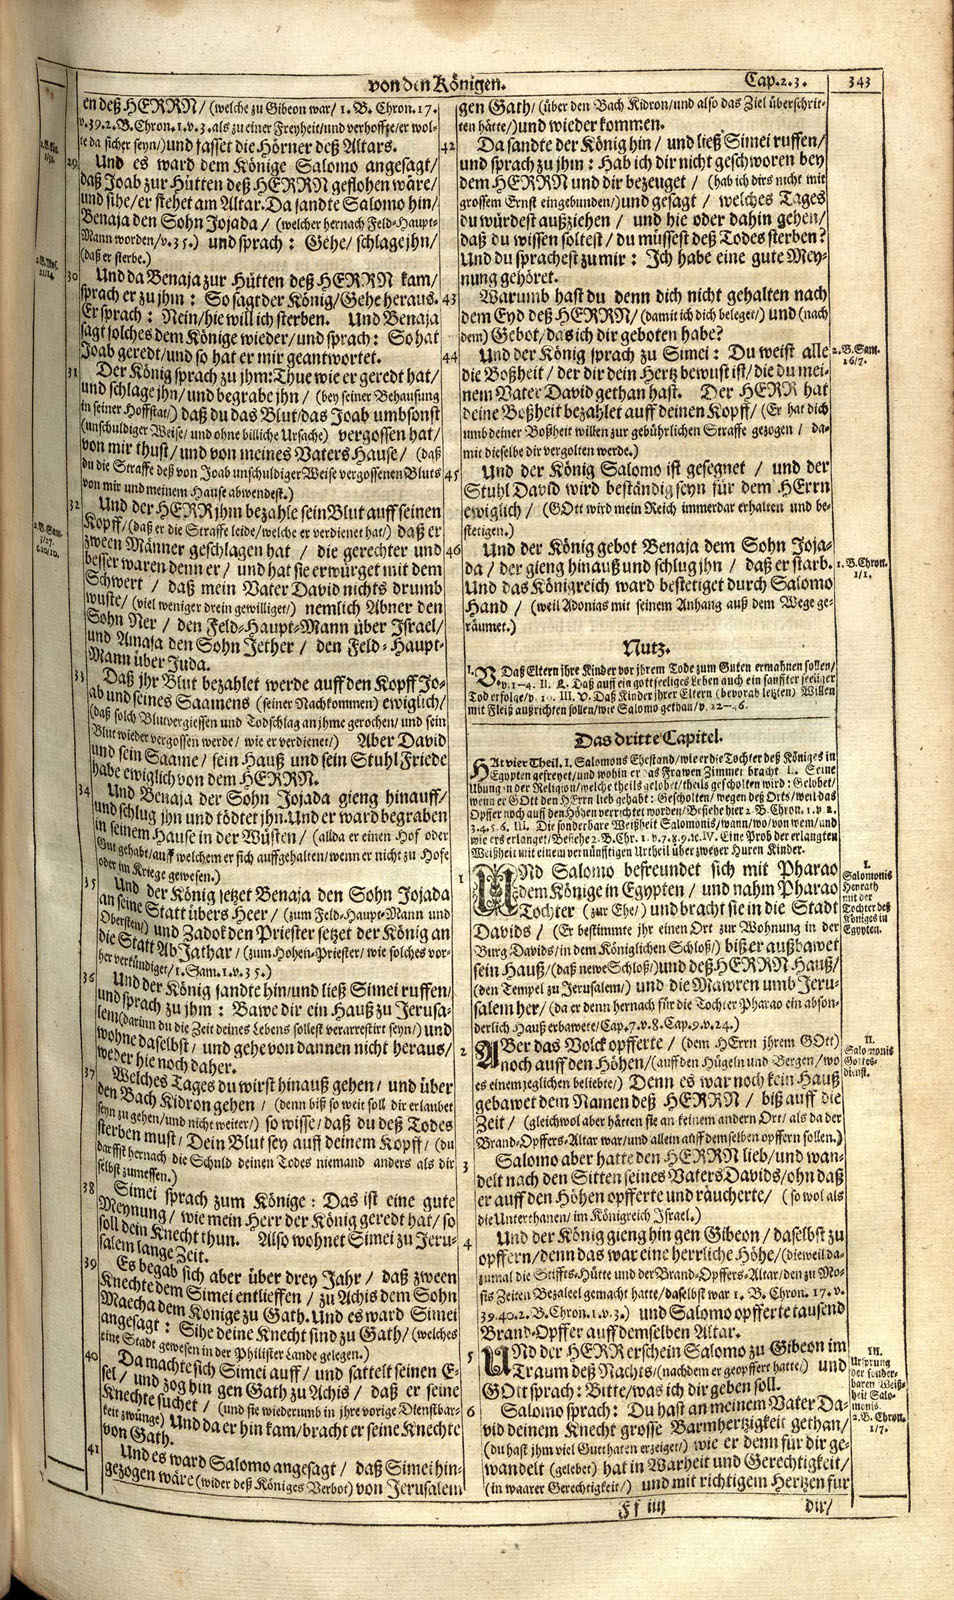 von den Königen.
Cap. 2. 3.
343
en deß HERRN / (welche zu Gibeon war / 1. B. Chron. 17.
v. 39. 2. B. Chron. 1. v. 3. als zu einer Freyheit / und verhoffte / er wol-
te da sicher seyn /) und fasset die Hörner deß Altars.
29 Und es ward dem Könige Salomo angesagt /
daß Joab zur Hütten deß HERRN geflohen wäre /
und sihe / er stehet am Altar. Da sandte Salomo hin /
Benaja den Sohn Jojada / (welcher hernach Feld-Haupt-
Mann worden / v. 35.) und sprach : Gehe / schlage jhn /
(daß er sterbe.)
30 Und da Benaja zur Hütten deß HERRN kam /
sprach er zu jhm : So sagt der König / Gehe heraus.
Er sprach : Nein / hie will ich sterben. Und Benaja
sagt solches dem Könige wieder / und sprach : So hat
Joab geredt / und so hat er mir geantwortet.
31 Der König sprach zu jhm: Thue wie er geredt hat /
und schlage jhn / und begrabe jhn / (bey seiner Behausung
in seiner Hoffstat /) daß du das Blut / das Joab umbsonst
(unschuldiger Weise / und ohne billiche Ursache) vergossen hat /
von mir thust / und von meines Vaters Hause / (daß
du die Straffe deß von Joab unschuldiger Weise vergossenen Bluts
von mir und meinem Hause abwendest.)
32 Und der HERR jhm bezahle sein Blut auff seinen
Kopff / (daß er die Straffe leide / welche er verdienet hat /) daß er
zween Männer geschlagen hat / die gerechter und
besser waren denn er / und hat sie erwürget mit dem
Schwert / daß mein Vater David nichts drumb
wuste / (viel weniger drein gewilliget /) nemlich Abner den
Sohn Ner / den Feld-Haupt-Mann über Israel /
und Amasa den Sohn Jether / den Feld-Haupt-
Mann über Juda.
33 Daß jhr Blut bezahlet werde auff den Kopff Jo-
ab und seines Saamens (seiner Nachkommen) ewiglich /
(daß solch Blutvergiessen und Todschlag an jhme gerochen / und sein
Blut wieder vergossen werde / wie er verdienet /) Aber David
und sein Saame / sein Hauß und sein Stuhl Friede
habe ewiglich von dem HERRN.
34 Und Benaja der Sohn Jojada gieng hinauff /
und schlug jhn und tödtet jhn. Und er ward begraben
in seinem Hause in der Wüsten / (allda er einen Hof oder
Gut gehabt / auff welchem er sich auffgehalten / wenn er nicht zu Hofe
oder im Kriege gewesen.)
35 Und der König setzet Benaja den Sohn Jojada
an seine Statt übers Heer / (zum Feld-Haupt-Mann und
Obersten /) und Zadok den Priester setzet der König an
die Statt Ab Jathar / (zum Hohen-Priester / wie solches vor-
her verkündiget / 1. Sam. 1. v. 35.)
36 Und der König sandte hin / und ließ Simei ruffen /
und sprach zu jhm : Bawe dir ein Hauß zu Jerusa-
lem / (darinn du die Zeit deines Lebens sollest verarrestirt seyn /) und
wohne daselbst / und gehe von dannen nicht heraus /
weder hie noch daher.
37 Welches Tages du wirst hinauß gehen / und über
den Bach Kidron gehen / (denn biß so weit soll dir erlaubet
seyn zu gehen / und nicht weiter /) so wisse / daß du deß Todes
sterben must / Dein Blut sey auff deinem Kopff / (du
darffst hernach die Schuld deinen Todes niemand anders als dir
selbst zumessen.)
38 Simei sprach zum Könige : Das ist eine gute
Meynung / wie mein Herr der König geredt hat / so
soll dein Knecht thun. Also wohnet Simei zu Jeru-
salem lange Zeit.
39 Es begab sich aber über drey Jahr / daß zween
Knechte dem Simei entlieffen / zu Achis dem Sohn
Maecha dem Könige zu Gath. Und es ward Simei
angesagt : Sihe deine Knecht sind zu Gath / (welches
eine Stadt gewesen in der Philister Lande gelegen.)
40 Da machte sich Simei auff / und sattelt seinen E-
sel / und zog hin gen Gath zu Achis / daß er seine
Knechte suchet / (und sie wiederumb in jhre vorige Dienstbar-
keit zwünge) Und da er hin kam / bracht er seine Knechte
von Gath.
41 Und es ward Salomo angesagt / daß Simei hin-
gezogen wäre (wider deß Königes Verbot) von Jerusalem
gen Gath / (über den Bach Kidron / und also das Ziel überschrit-
ten hätte /) und wieder kommen.
42 Da sandte der König hin / und ließ Simei ruffen /
und sprach zu jhm : Hab ich dir nicht geschworen bey
dem HERRN und dir bezeuget / (hab ich dirs nicht mit
grossem Ernst eingebunden /) und gesagt / welches Tages
du würdest außziehen / und hie oder dahin gehen /
daß du wissen soltest / du müssest deß Todes sterben?
Und du sprachest zu mir : Ich habe eine gute Mey-
nung gehöret.
43 Warumb hast du denn dich nicht gehalten nach
dem Eyd deß HERRN / (damit ich dich beleget /) und (nach
dem) Gebot / das ich dir geboten habe?
44 Und der König sprach zu Simei : Du weist alle
die Boßheit / der dir dein Hertz bewust ist / die du mei-
nem Vater David gethan hast. Der HERR hat
deine Boßheit bezahlet auff deinen Kopff / (Er hat dich
umb deiner Boßheit willen zur gebührlichen Straffe gezogen / da-
mit dieselbe dir vergolten werde.)
45 Und der König Salomo ist gesegnet / und der
Stuhl David wird beständig seyn für dem HErrn
ewiglich / (GOtt wird mein Reich immerdar erhalten und be-
stetigen.)
46 Und der König gebot Benaja dem Sohn Joja-
da / der gieng hinauß und schlug jhn / daß er starb.
Und das Königreich ward bestetiget durch Salomo
Hand / (weil Adonias mit seinem Anhang auß dem Wege ge-
räumet.)
Nutz.
I. Daß Eltern jhre Kinder vor jhrem Tode zum Guten ermahnen sollen /
v. 1--4. II. Daß auff ein gottseeliges Leben auch ein sanffter seeliger
Tod erfolge / v. 10. III. Daß Kinder jhrer Eltern (bevorab letzten) Willen
mit Fleiß außrichten sollen / wie Salomo gethan / v. 12--46.
Das dritte Capitel.
HAt vier Theil. I. Salomons Ehestand / wie er die Tochter deß Königes in
Egypten gefreyet / und wohin er das Frawen Zimmer bracht. II. Seine
Ubung in der Religion / welche theils gelobet / theils gescholten wird : Gelobet /
wenn er GOtt den HErrn lieb gehabt : Gescholten / wegen deß Orts / weil das
Opffer noch auff den Höhen verrichtet worden / Besiehe hier 2. B. Chron. 1. v. 2.
3. 4. 5. 6. III. Die sonderbare Weißheit Salomonis / wann / wo / von wem / und
wie ers erlanget / Besiehe 2. B. Chr. 1. v. 7. 8. 9. etc. IV. Eine Prob der erlangten
Weißheit mit einem vernünfftigen Urtheil über zweyer Huren Kinder.
1 UNd Salomo befreundet sich mit Pharao
dem Könige in Egypten / und nahm Pharao
Tochter (zur Ehe /) und bracht sie in die Stadt
Davids / (Er bestimte jhr einen Ort zur Wohnung in der
Burg Davids / in dem Königlichen Schloß /) biß er außbawet
sein Hauß / (daß newe Schloß /) und deß HERRN Hauß /
(den Tempel zu Jerusalem /) und die Mawren umb Jeru-
salem her / (da er denn hernach für die Tochter Pharao ein abson-
derlich Hauß erbawete / Cap. 7. v. 8. Cap. 9. v. 24.)
2 ABer das Volck opfferte / (dem HErrn jhrem GOtt)
noch auff den Höhen / (auff den Hügeln und Bergen / wo
es einem jeglichen beliebte /) Denn es war noch kein Hauß
gebawet dem Namen deß HERRN / biß auff die
Zeit / (gleichwol aber hätten sie an keinem andern Ort / als da der
Brand-Opffers-Altar war / und allein auff demselben opffern sollen.)
3 Salomo aber hatte den HERRN lieb / und wan-
delt nach den Sitten seines Vaters Davids / ohn daß
er auff den Höhen opfferte und räucherte / (so wol als
die Unterthanen / im Königreich Israel.)
4 Und der König gieng hin gen Gibeon / daselbst zu
opffern / denn das war eine herrliche Höhe / (dieweil da-
zumal die Stiffts-Hütte und der Brand-Opffers-Altar / den zu Mo-
sis Zeiten Bezaleel gemacht hatte / daselbst war 1. B. Chron. 17. v.
39. 40. 2. B. Chron. 1. v. 3.) und Salomo opfferte tausend
Brand-Opffer auff demselben Altar.
5 UNd der HERR erschein Salomo zu Gibeon im
Traum deß Nachts / (nachdem er geopffert hatte /) und
GOtt sprach : Bitte / was ich dir geben soll.
6 Salomo sprach : Du hast an meinem Vater Da-
vid deinem Knecht grosse Barmhertzigkeit gethan /
(du hast jhm viel Gutthaten erzeiget /) wie er denn für dir ge-
wandelt (gelebet) hat in Warheit und Gerechtigkeit /
(in waarer Gerechtigkeit /) und mit richtigem Hertzen für
Ff iiij
dir /
2. B. Sam.
16/7.
1. B. Chron.
1/1.
I.
Salomonis
Heyrath
mit der
Tochter deß
Königes in
Egypten.
II.
Salomonis
Gottes-
dienst.
III.
Ursprung
der sonder-
baren Weiß-
heit Salo-
monis.
2. B. Chron.
1/7.